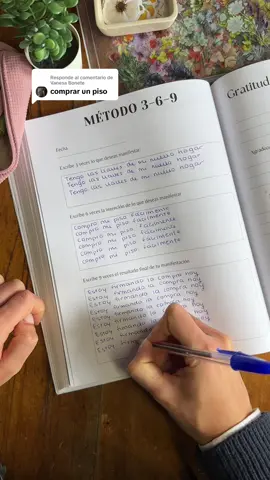 Responde al comentario de
Vanesa Bonete
comprar un piso
MÉTODO 3-6-9
Gratitud
Fecha
Escribe 3 veces lo que deseas manifestar
Tengo las llaves de mi nuevo hogar
Tengo las llaves de mi nuevo hogar
Tengo las llaves de mi nuevo hogar
Escribe 6 veces la intención de lo que deseas manifestar
Compro mi piso facilmente
compro mi piso facilmente
compro mi piso facilmente
compro mi piso facilmente
compro mi piso facilmente
compro mi piso facilmente
Escribe 9 veces el resultado final de tu manifestación
Estoy firmando la compra hoy
Estoy firmando la compra hoy
Estoy firmando la compra hoy
Estoy firmando la compra hoy
Estoy firmando la compra hoy
Estoy
Estoy
Estoy